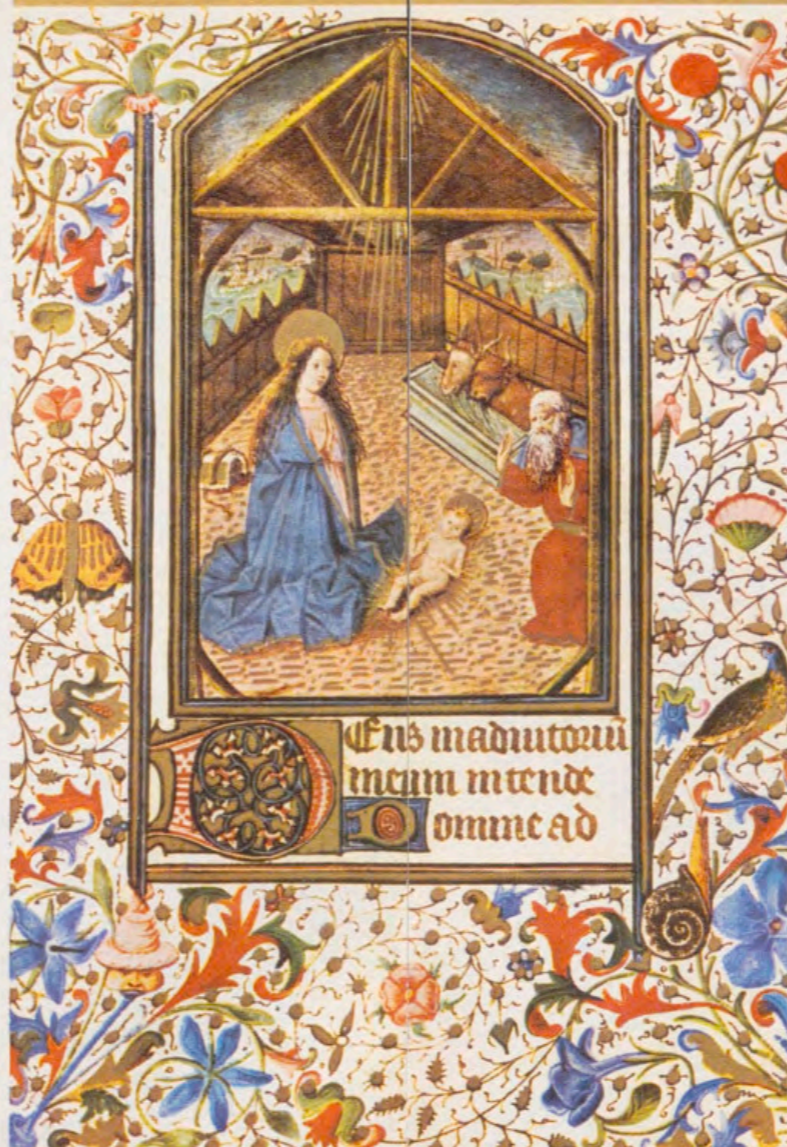 Deus in adiutoriū
meum intende
Domine ad